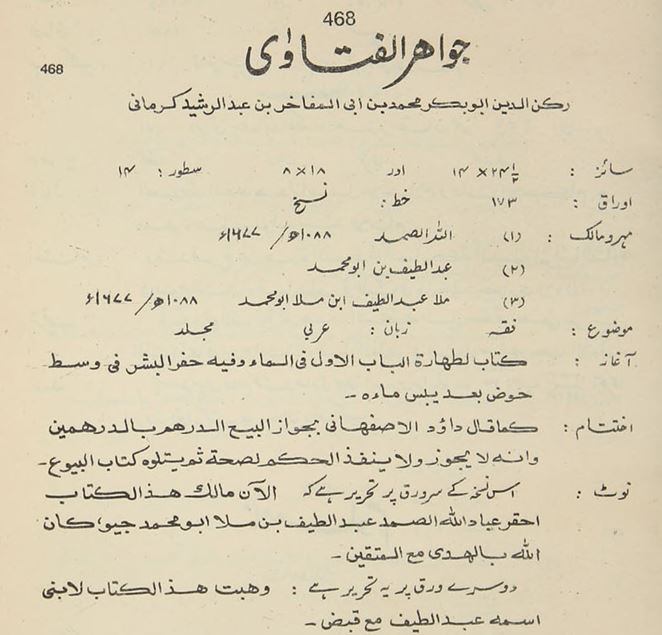 468
جواهر الفتاوٰی
468
رکن الدین ابوبکر محمد بن ابی المفاخر بن عبد الرشید کرمانی
سائز : ۲۴½ × ۱۴ اور ۱۸ × ۸ سطور : ۱۴
اوراق : ۱۷۳ خط : نسخ
مہر و مالک : (۱) اللہ الصمد ۱۰۸۸ھ/ ۱۶۷۷ء
(۲) عبد الطیف بن ابو محمد
(۳) ملا عبد الطیف ابن ملا ابو محمد ۱۰۸۸ھ/ ۱۶۷۷ء
موضوع : فقہ زبان : عربی مجلد
آغاز : کتاب لطهارة الباب الاول فی الماء وفیه حفر البئر فی وسط
حوض بعد یبس ماءه ۔
اختتام : کما قال داؤد الاصفهانی بجواز البیع الدرهم بالدرهمین
وانه لا یجوز ولا ینفذ الحکم لصحة ثم یتلوه کتاب البیوع ۔
نوٹ : اس نسخہ کے سرورق پر تحریر ہے کہ الآن مالك هذ الکتاب
احقر عباد الله الصمد عبد الطیف بن ملا ابو محمد جیو، کان
الله بالهدی مع المتقین ۔
دوسرے ورق پر یہ تحریر ہے : وهبت هذ الکتاب لابنی
اسمه عبد الطیف مع قبض ۔